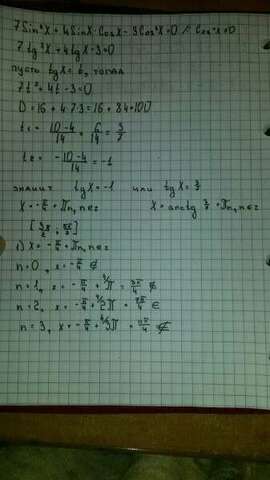 7Sin²X + 4SinX·CosX - 3Cos²X=0 //:Cos²X≠0
7tg²X + 4tgX - 3=0
пусть tgX = t, тогда
7t² + 4t - 3 = 0
D = 16 + 4·7·3 = 16 + 84 = 100
t₁ = (10-4)/14 = 6/14 = 3/7
t₂ = (-10-4)/14 = -1
значит tgX = -1 или tgX = 3/7
X = -π/4 + πn, n∈z X = arctg 3/7 + πn, n∈z
1) X = -π/4 + πn, n∈z
n=0, x = -π/4 ∉
n=1, x = -π/4 + π = 3π/4 ∉
n=2, x = -π/4 + 2π = 7π/4 ∈
n=3, x = -π/4 + 3π = 11π/4 ∉